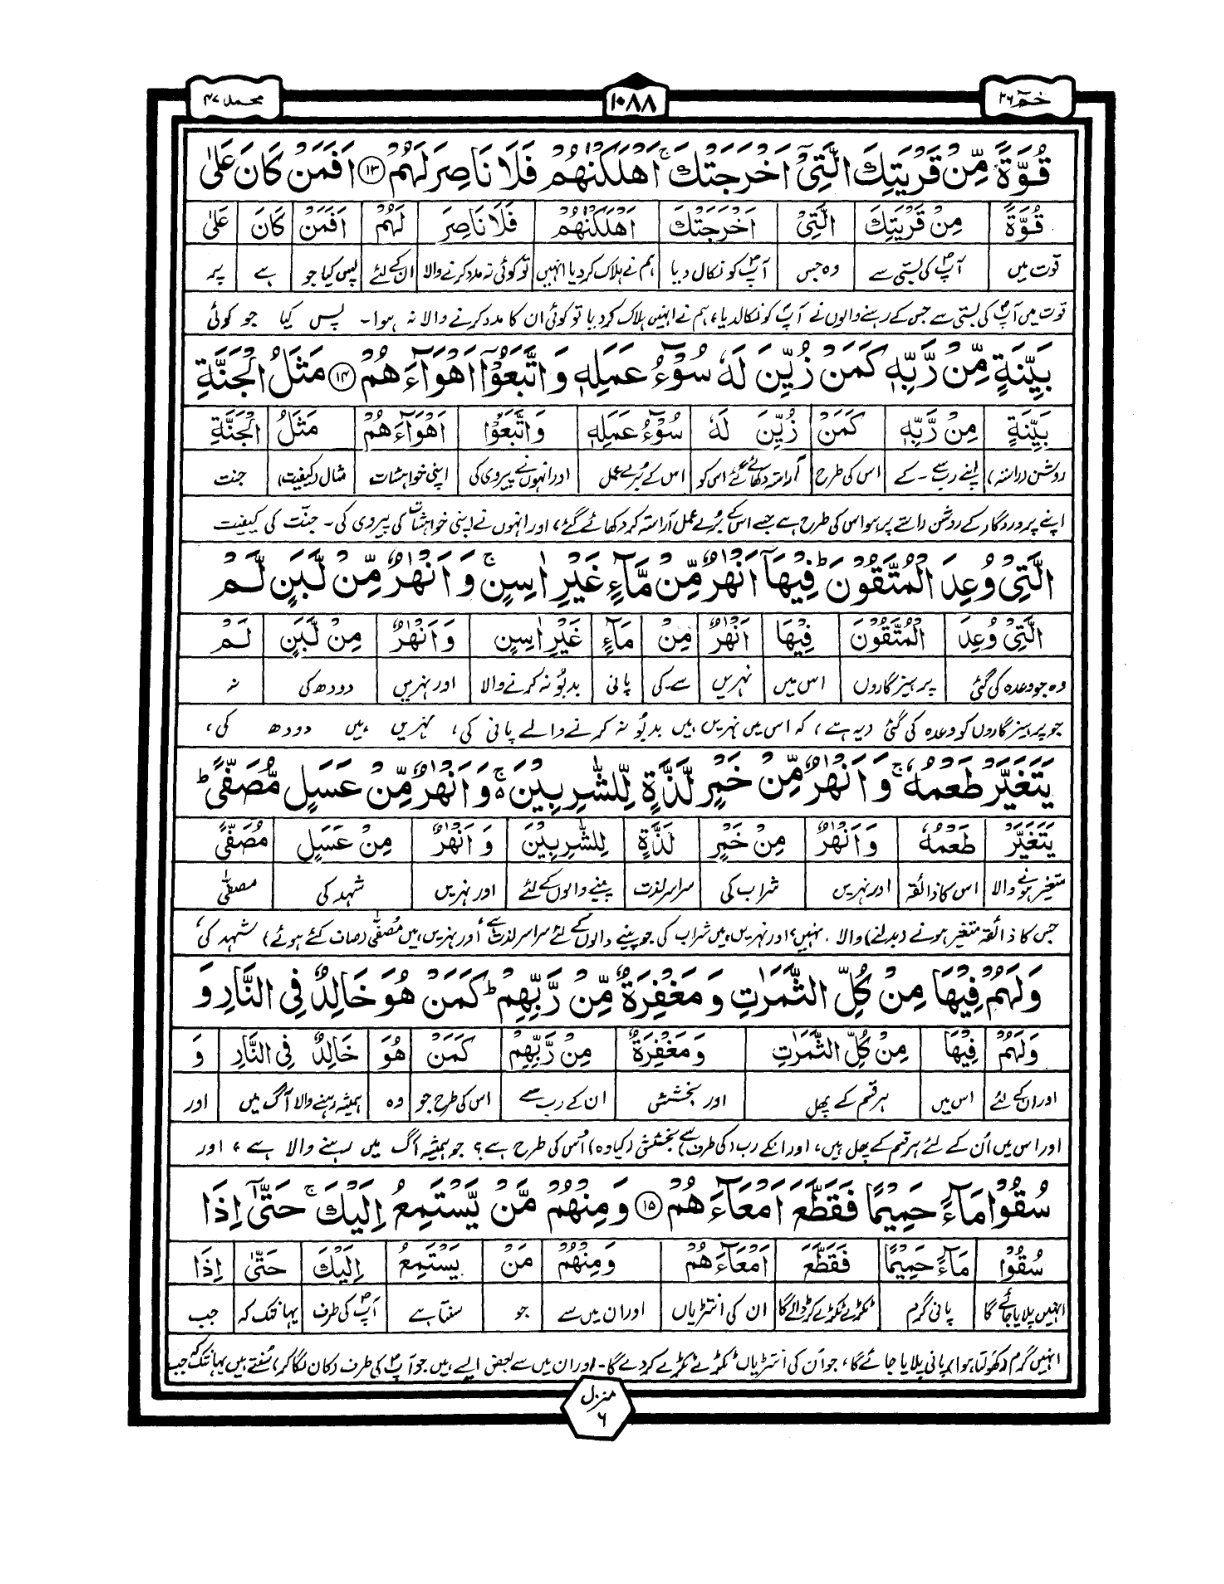 حٰمٓ ۲۶
۱۰۸۸
محمد ۴۷
قُوَّةً مِّنْ قَرْيَتِكَ الَّتِيْٓ اَخْرَجَتْكَ ۚ اَهْلَكْنٰهُمْ فَلَا نَاصِرَ لَهُمْ ﴿۱۳﴾ اَفَمَنْ كَانَ عَلٰى
قُوَّةً مِنْ قَرْيَتِكَ الَّتِيْٓ اَخْرَجَتْكَ اَهْلَكْنٰهُمْ فَلَا نَاصِرَ لَهُمْ اَفَمَنْ كَانَ عَلٰى
قوت میں آپؐ کی بستی سے وہ جس آپؐ کو نکال دیا ہم نے ہلاک کر دیا انہیں تو کوئی نہ مدد کرنے والا ان کے لئے پس کیا جو ہے پر
قوت میں آپؐ کی بستی سے جس کے رہنے والوں نے آپؐ کو نکالدیا، ہم نے انہیں ہلاک کر دیا تو کوئی ان کا مدد کرنے والا نہ ہوا۔ پس کیا جو کوئی
بَيِّنَةٍ مِّنْ رَّبِّهٖ كَمَنْ زُيِّنَ لَهٗ سُوْٓءُ عَمَلِهٖ وَاتَّبَعُوْٓا اَهْوَآءَهُمْ ﴿۱۴﴾ مَثَلُ الْجَنَّةِ
بَيِّنَةٍ مِنْ رَّبِّهٖ كَمَنْ زُيِّنَ لَهٗ سُوْٓءُ عَمَلِهٖ وَاتَّبَعُوْٓا اَهْوَآءَهُمْ مَثَلُ الْجَنَّةِ
روشن (راستہ) اپنے رب سے۔ کے اس کی طرح آراستہ دکھائے گئے اس کو اس کے بُرے عمل اور انہوں نے پیروی کی اپنی خواہشات مثال (کیفیت) جنت
اپنے پروردگار کے روشن راستے پر ہو اس کی طرح ہے جسے اس کے بُرے عمل آراستہ کر دکھائے گئے، اور انہوں نے اپنی خواہشات کی پیروی کی۔ جنت کی کیفیت
الَّتِيْ وُعِدَ الْمُتَّقُوْنَ ؕ فِيْهَآ اَنْهٰرٌ مِّنْ مَّآءٍ غَيْرِ اٰسِنٍ ۚ وَاَنْهٰرٌ مِّنْ لَّبَنٍ لَّمْ
الَّتِيْ وُعِدَ الْمُتَّقُوْنَ فِيْهَا اَنْهٰرٌ مِنْ مَآءٍ غَيْرِ اٰسِنٍ وَاَنْهٰرٌ مِنْ لَّبَنٍ لَمْ
وہ جو وعدہ کی گئی پرہیزگاروں اس میں نہریں سے کی پانی بدبُو نہ کرنے والا اور نہریں دودھ کی نہ
جو پرہیزگاروں کو وعدہ کی گئی دیہ ہے، کہ اس میں نہریں ہیں بدبُو نہ کرنے والے پانی کی، نہریں ہیں دودھ کی،
يَتَغَيَّرْ طَعْمُهٗ ۚ وَاَنْهٰرٌ مِّنْ خَمْرٍ لَّذَّةٍ لِّلشّٰرِبِيْنَ ۚ وَاَنْهٰرٌ مِّنْ عَسَلٍ مُّصَفًّى ؕ
يَتَغَيَّرْ طَعْمُهٗ وَاَنْهٰرٌ مِنْ خَمْرٍ لَذَّةٍ لِلشّٰرِبِيْنَ وَاَنْهٰرٌ مِنْ عَسَلٍ مُصَفًّى
متغیر ہونے والا اس کا ذائقہ اور نہریں شراب کی سراسر لذت پینے والوں کے لئے اور نہریں شہد کی مصفّٰی
جس کا ذائقہ متغیر ہونے (بدلنے) والا نہیں، اور نہریں ہیں شراب کی جو پینے والوں کے لئے سراسر لذت ہے، اور نہریں ہیں مُصفّٰی (صاف کئے ہوئے) شہد کی،
وَلَهُمْ فِيْهَا مِنْ كُلِّ الثَّمَرٰتِ وَمَغْفِرَةٌ مِّنْ رَّبِّهِمْ ؕ كَمَنْ هُوَ خَالِدٌ فِي النَّارِ وَ
وَلَهُمْ فِيْهَا مِنْ كُلِّ الثَّمَرٰتِ وَمَغْفِرَةٌ مِنْ رَّبِّهِمْ كَمَنْ هُوَ خَالِدٌ فِي النَّارِ وَ
اور ان کے لئے اس میں ہر قسم کے پھل اور بخشش ان کے رب سے اس کی طرح جو وہ ہمیشہ رہنے والا آگ میں اور
اور اس میں اُن کے لئے ہر قسم کے پھل ہیں، اور انکے رب (کی طرف) سے بخشش (کیا وہ) اُس کی طرح ہے؟ جو ہمیشہ آگ میں رہنے والا ہے، اور
سُقُوْا مَآءً حَمِيْمًا فَقَطَّعَ اَمْعَآءَهُمْ ﴿۱۵﴾ وَمِنْهُمْ مَّنْ يَّسْتَمِعُ اِلَيْكَ ۚ حَتّٰٓى اِذَا
سُقُوْا مَآءً حَمِيْمًا فَقَطَّعَ اَمْعَآءَهُمْ وَمِنْهُمْ مَنْ يَسْتَمِعُ اِلَيْكَ حَتّٰٓى اِذَا
انہیں پلایا جائے گا پانی گرم ٹکڑے ٹکڑے کر ڈالے گا ان کی انتڑیاں اور ان میں سے جو سنتا ہے آپؐ کی طرف یہانتک کہ جب
انہیں گرم (کھولتا ہوا) پانی پلایا جائے گا، جو اُن کی انتڑیاں ٹکڑے ٹکڑے کر دے گا۔ اور ان میں سے بعض ایسے ہیں جو آپؐ کی طرف (کان لگا کر) سُنتے ہیں یہانتک کہ جب
منزل ۶